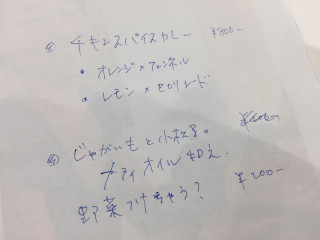 ② チキンスパイスカレー ¥800-
• オレンジ×フェンネル
• レモン×セロリシード
④ じゃがいもと小松菜の
オイル和え.
野菜つけちゃう? ¥200-